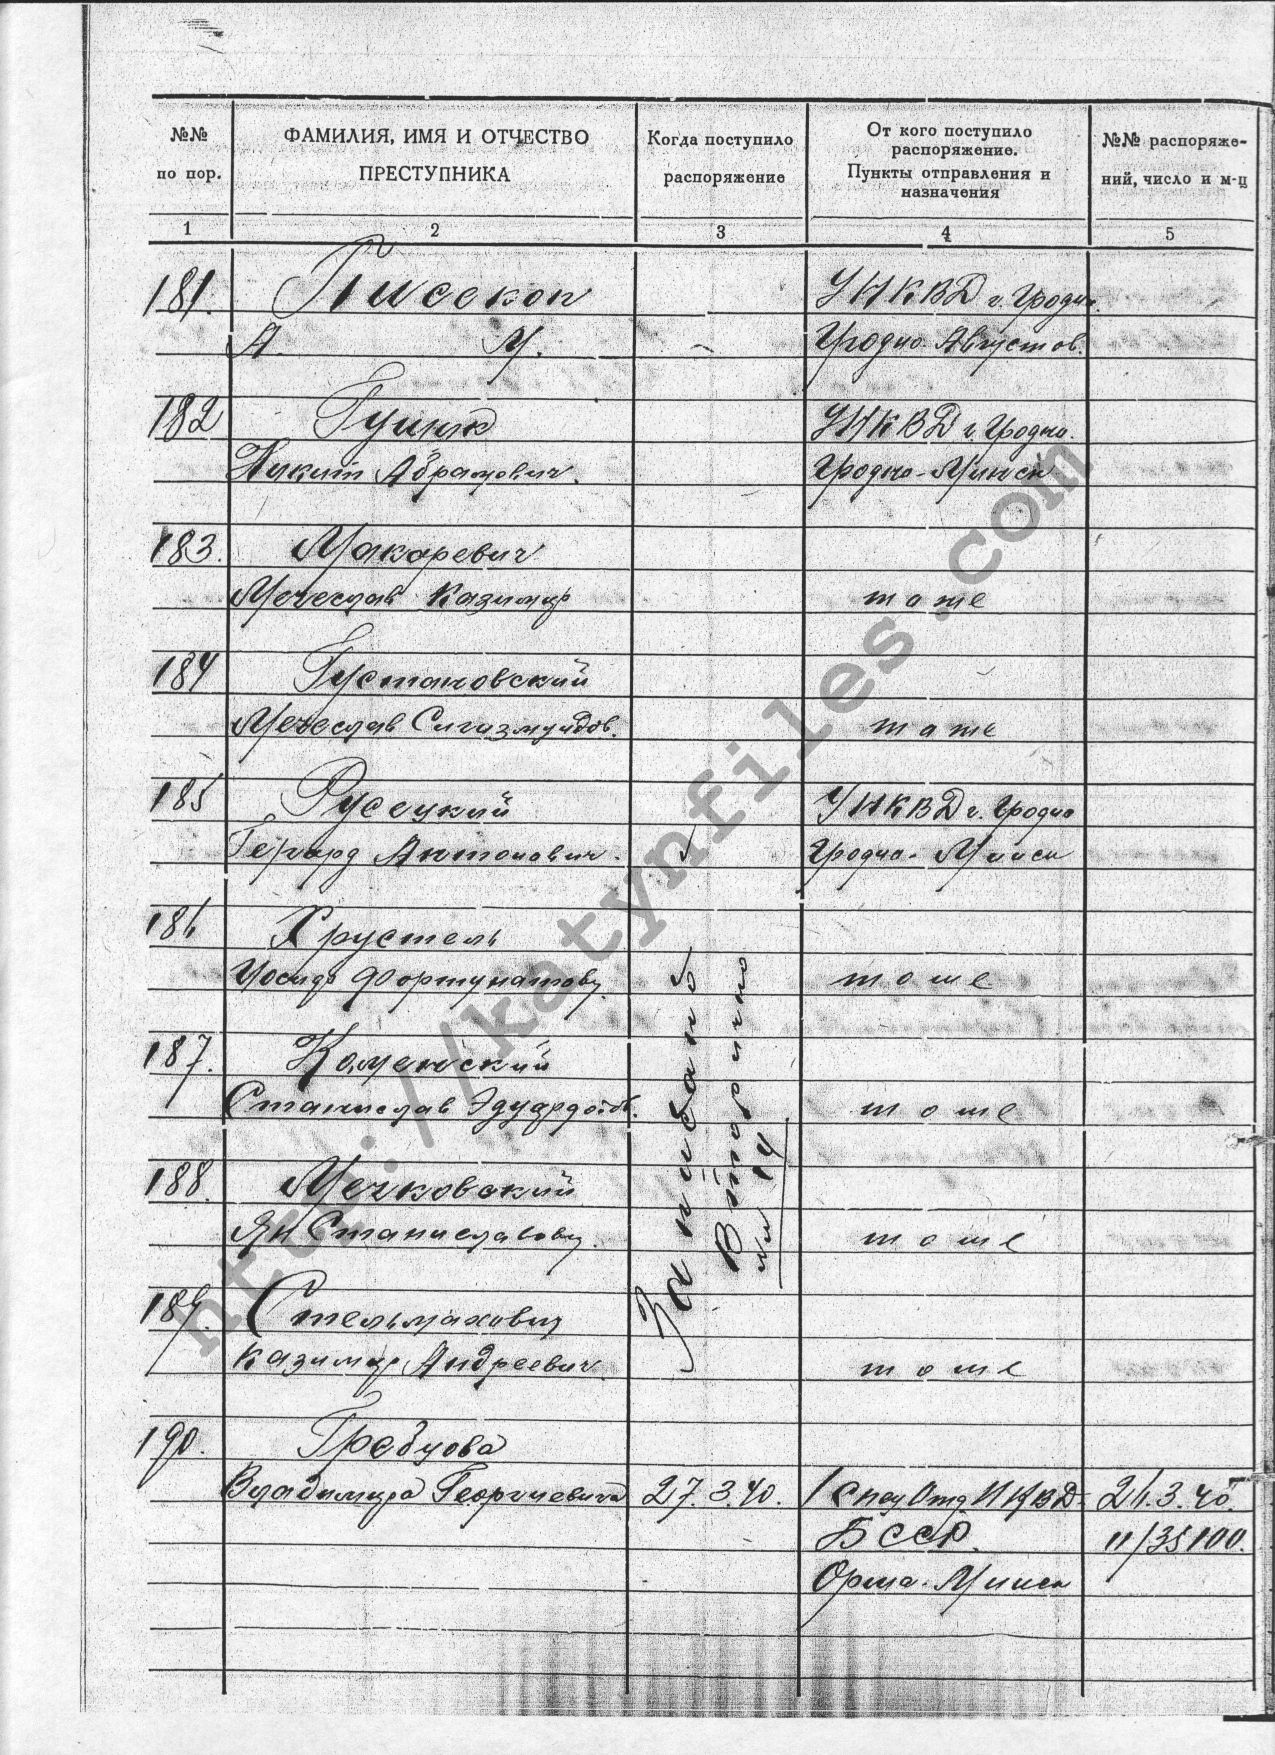 №№ по пор.
ФАМИЛИЯ, ИМЯ И ОТЧЕСТВО ПРЕСТУПНИКА
Когда поступило распоряжение
От кого поступило распоряжение. Пункты отправления и назначения
№№ распоряжений, число и м-ц
1 2 3 4 5
181. УНКВД г. Гродно.
А. М. Гродно Августов.
182 УНКВД г. Гродно.
Абрамович. Гродно-Минск
183. Макаревич
Мечеслав Казимир тоже
184 Густановский
Мечеслав Сигизмундов. тоже
185 Русецкий УНКВД г. Гродно
Герард Антонович. Гродно-Минск
186 Хрустель
Иосиф Фортунатович тоже
187. Каменский
Станислав Эдуардов. тоже
188. Мечковский
Ян Станиславович. тоже
189. Стельмахович
Казимир Андреевич тоже
190. Гребцова
Владимира Георгиевича 27.3.40. 1 Спец Отд НКВД 21.3.40.
БССР. 11/35100.
Орша-Минск
Записано
Вторично
14
http://katynfiles.com